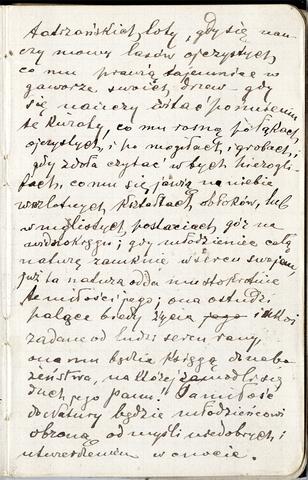 tatrzańskich loty, gdy się nau-
czy mowy lasów ojczystych,
co mu prawią tajemnice w
gaworze swoich drzew – gdy
się nauczy witać
te kwiaty, co mu rosną po łąkach
ojczystych, i po mogiłach, i grobach,
gdy zdoła czytać w tych hierogli-
fach, co mu się jawią na niebie
w kształtach obłoków, lub
w mglistych postaciach gór na
widnokręgu; gdy młodzieniec całą
naturę zamknie w sercu swojem,
już ta natura odda mu stokrotnie
tę miłość jego; ona ostudzi
palące życia jego i
zadane od ludzi sercu rany,
ona mu będzie księgą do nabo-
żeństwa, na której zamodli się
duch jego panu. Ta miłość
do Natury będzie młodzieńcowi
obroną od myśli niedobrych i
utwierdzeniem w cnocie.